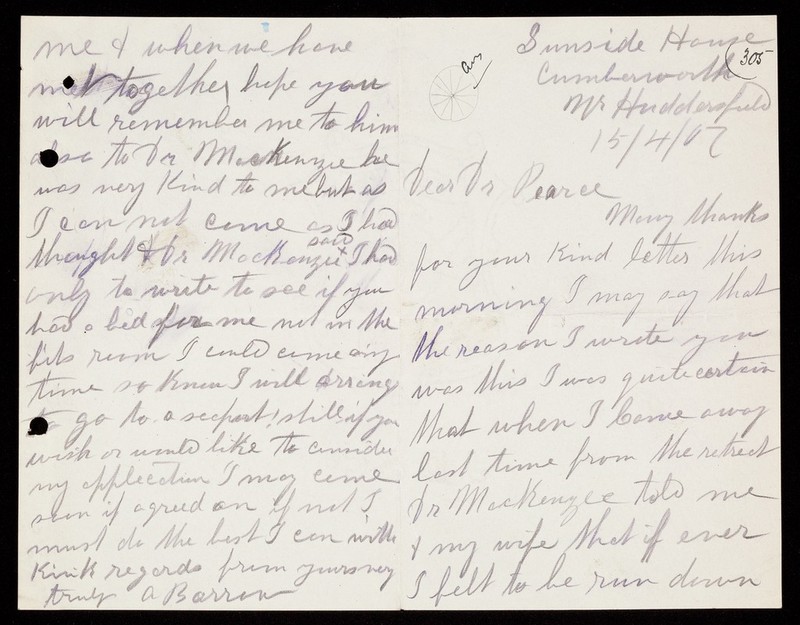 Sunside House
305
ans
Cumberworth
Nr Huddersfield
15/4/07
Dear Dr Pearce
Many thanks
for your Kind letter this
morning I may say that
the reason I wrote you
was this I was quite certain
that when I Came away
last time from the retreat
Dr MacKenzie told me
& my wife that if ever
I felt to be run down
me & when we have
met together hope you
will remember me to him
also to Dr MacKenzie he
was very Kind to me but as
I can not come as I had
thought & Dr MacKenzie said & I had
only to write to see if you
had a bed for me not in the
fits room I could come any
time so Know I will arrange
to go to a seaport! still if you
wish or would like to consider
my application I may come
soon if agreed on if not I
must do the best I can with
Kink regards from yours very
truly A Barron